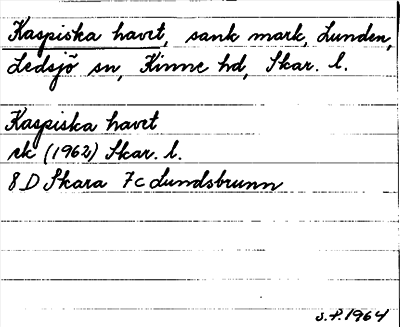 Kaspiska havet, sank mark, Lunden,
Ledsjö sn, Kinne hd, Skar. l.
Kaspiska havet
ek (1962) Skar. l.
8 D Skara 7c Lundsbrunn
S.P. 1964